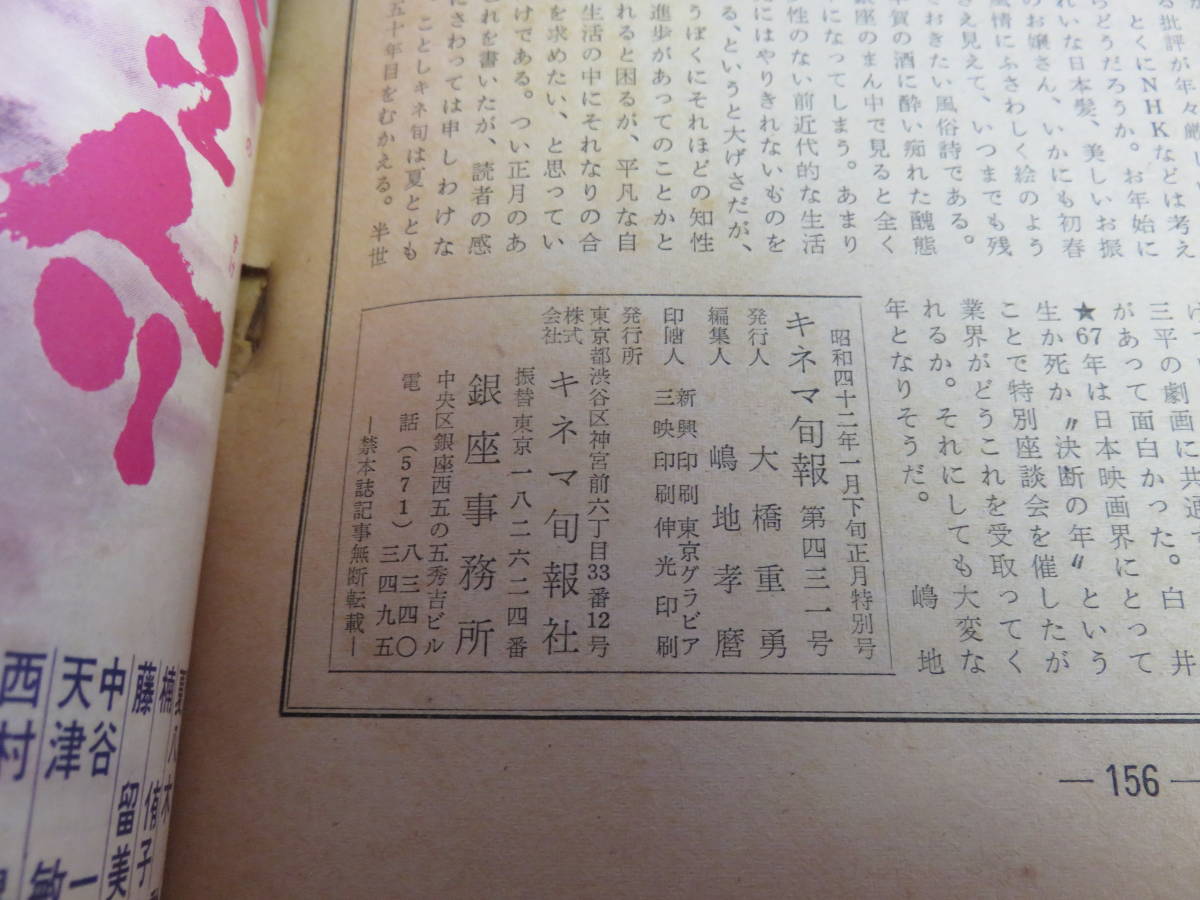 る批評が年々
とくにＮＨＫなどは考え
らどうだろうか。お年始に
れいな日本髪、美しいお振
のお嬢さん、いかにも初春
風情にふさわしく絵のよう
さえ見えて、いつまでも残
おきたい風俗詩である。
年賀の酒に酔い痴れた醜態
銀座のまん中で見ると全く
になってしまう。あまり
性のない前近代的な生活
にはやりきれないものを
る、というと大げさだが、
うぼくにそれほどの知性
進歩があってのことかと
れると困るが、平凡な自
生活の中にそれなりの合
を求めたい、と思ってい
けである。つい正月のあ
れを書いたが、読者の感
にさわっては申しわけな
ことしキネ旬は夏ととも
五十年目をむかえる。半世
三平の劇画に共通
があって面白かった。白井
★67年は日本映画界にとって
生か死か〝決断の年〟という
ことで特別座談会を催したが
業界がどうこれを受取ってく
れるか。それにしても大変な
年となりそうだ。
嶋地
昭和四十二年一月下旬正月特別号
キネマ旬報 第四三一号
発行人 大橋重勇
編集人 嶋地孝麿
印刷人 新興印刷 東京グラビア
三映印刷 伸光印刷
発行所
東京都渋谷区神宮前六丁目33番12号
株式会社 キネマ旬報社
振替東京一八二六二四番
銀座事務所
中央区銀座西五の五秀吉ビル
電話(571)八三四〇
三四九五
―禁本誌記事無断転載―
―156―
の
藤
侑子
中谷
留美
天津
敏
一
西村